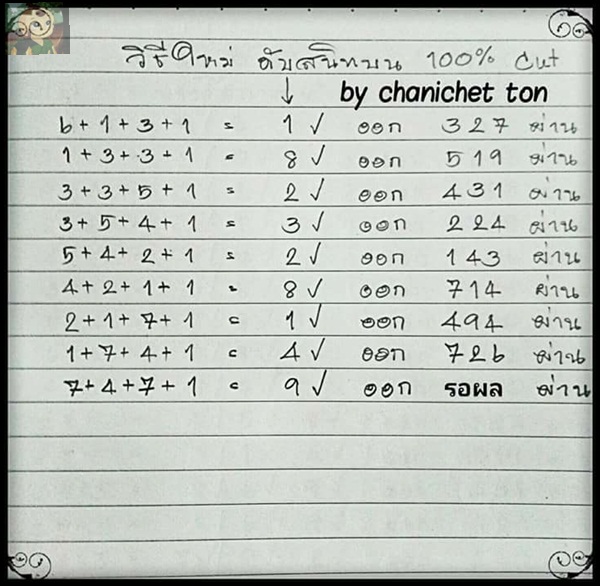 วิธีใหม่ ดับสนิทบน 100% Cut
↓ by chanichet ton
6 + 1 + 3 + 1 = 1 ✓ ออก 327 ผ่าน
1 + 3 + 3 + 1 = 8 ✓ ออก 519 ผ่าน
3 + 3 + 5 + 1 = 2 ✓ ออก 431 ผ่าน
3 + 5 + 4 + 1 = 3 ✓ ออก 224 ผ่าน
5 + 4 + 2 + 1 = 2 ✓ ออก 143 ผ่าน
4 + 2 + 1 + 1 = 8 ✓ ออก 714 ผ่าน
2 + 1 + 7 + 1 = 1 ✓ ออก 494 ผ่าน
1 + 7 + 4 + 1 = 4 ✓ ออก 726 ผ่าน
7 + 4 + 7 + 1 = 9 ✓ ออก รอผล ผ่าน